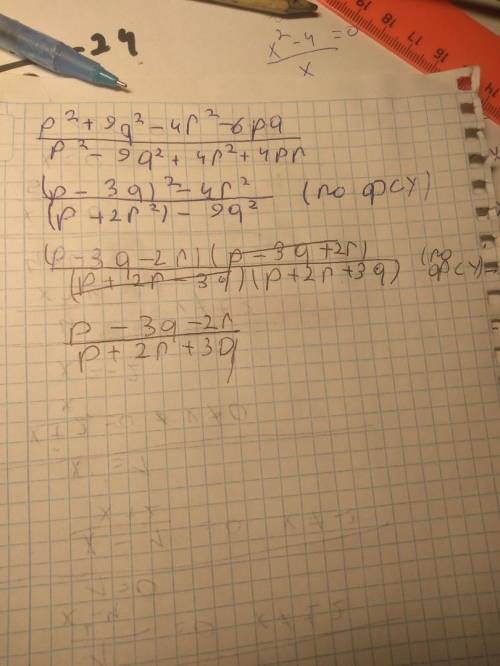 -24
x² - 4 = 0
x
16 17 18 19
p² + 9q² - 4r² - 6pq
p² - 9q² + 4r² + 4pr
(p - 3q)² - 4r² (по ФСУ)
(p + 2r²) - 9q²
(p - 3q - 2r)(p - 3q + 2r) (по
(p + 2r - 3q)(p + 2r + 3q) ФСУ)=
p - 3q - 2r
p + 2r + 3q